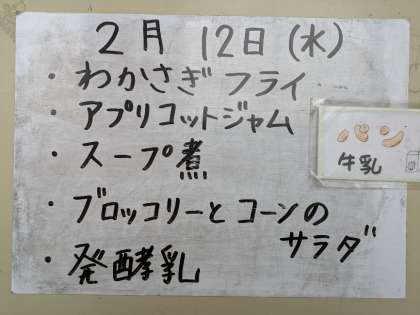 2月 12日(水)
・わかさぎフライ
・アプリコットジャム
・スープ煮
・ブロッコリーとコーンの
サラダ
・発酵乳
パン
牛乳